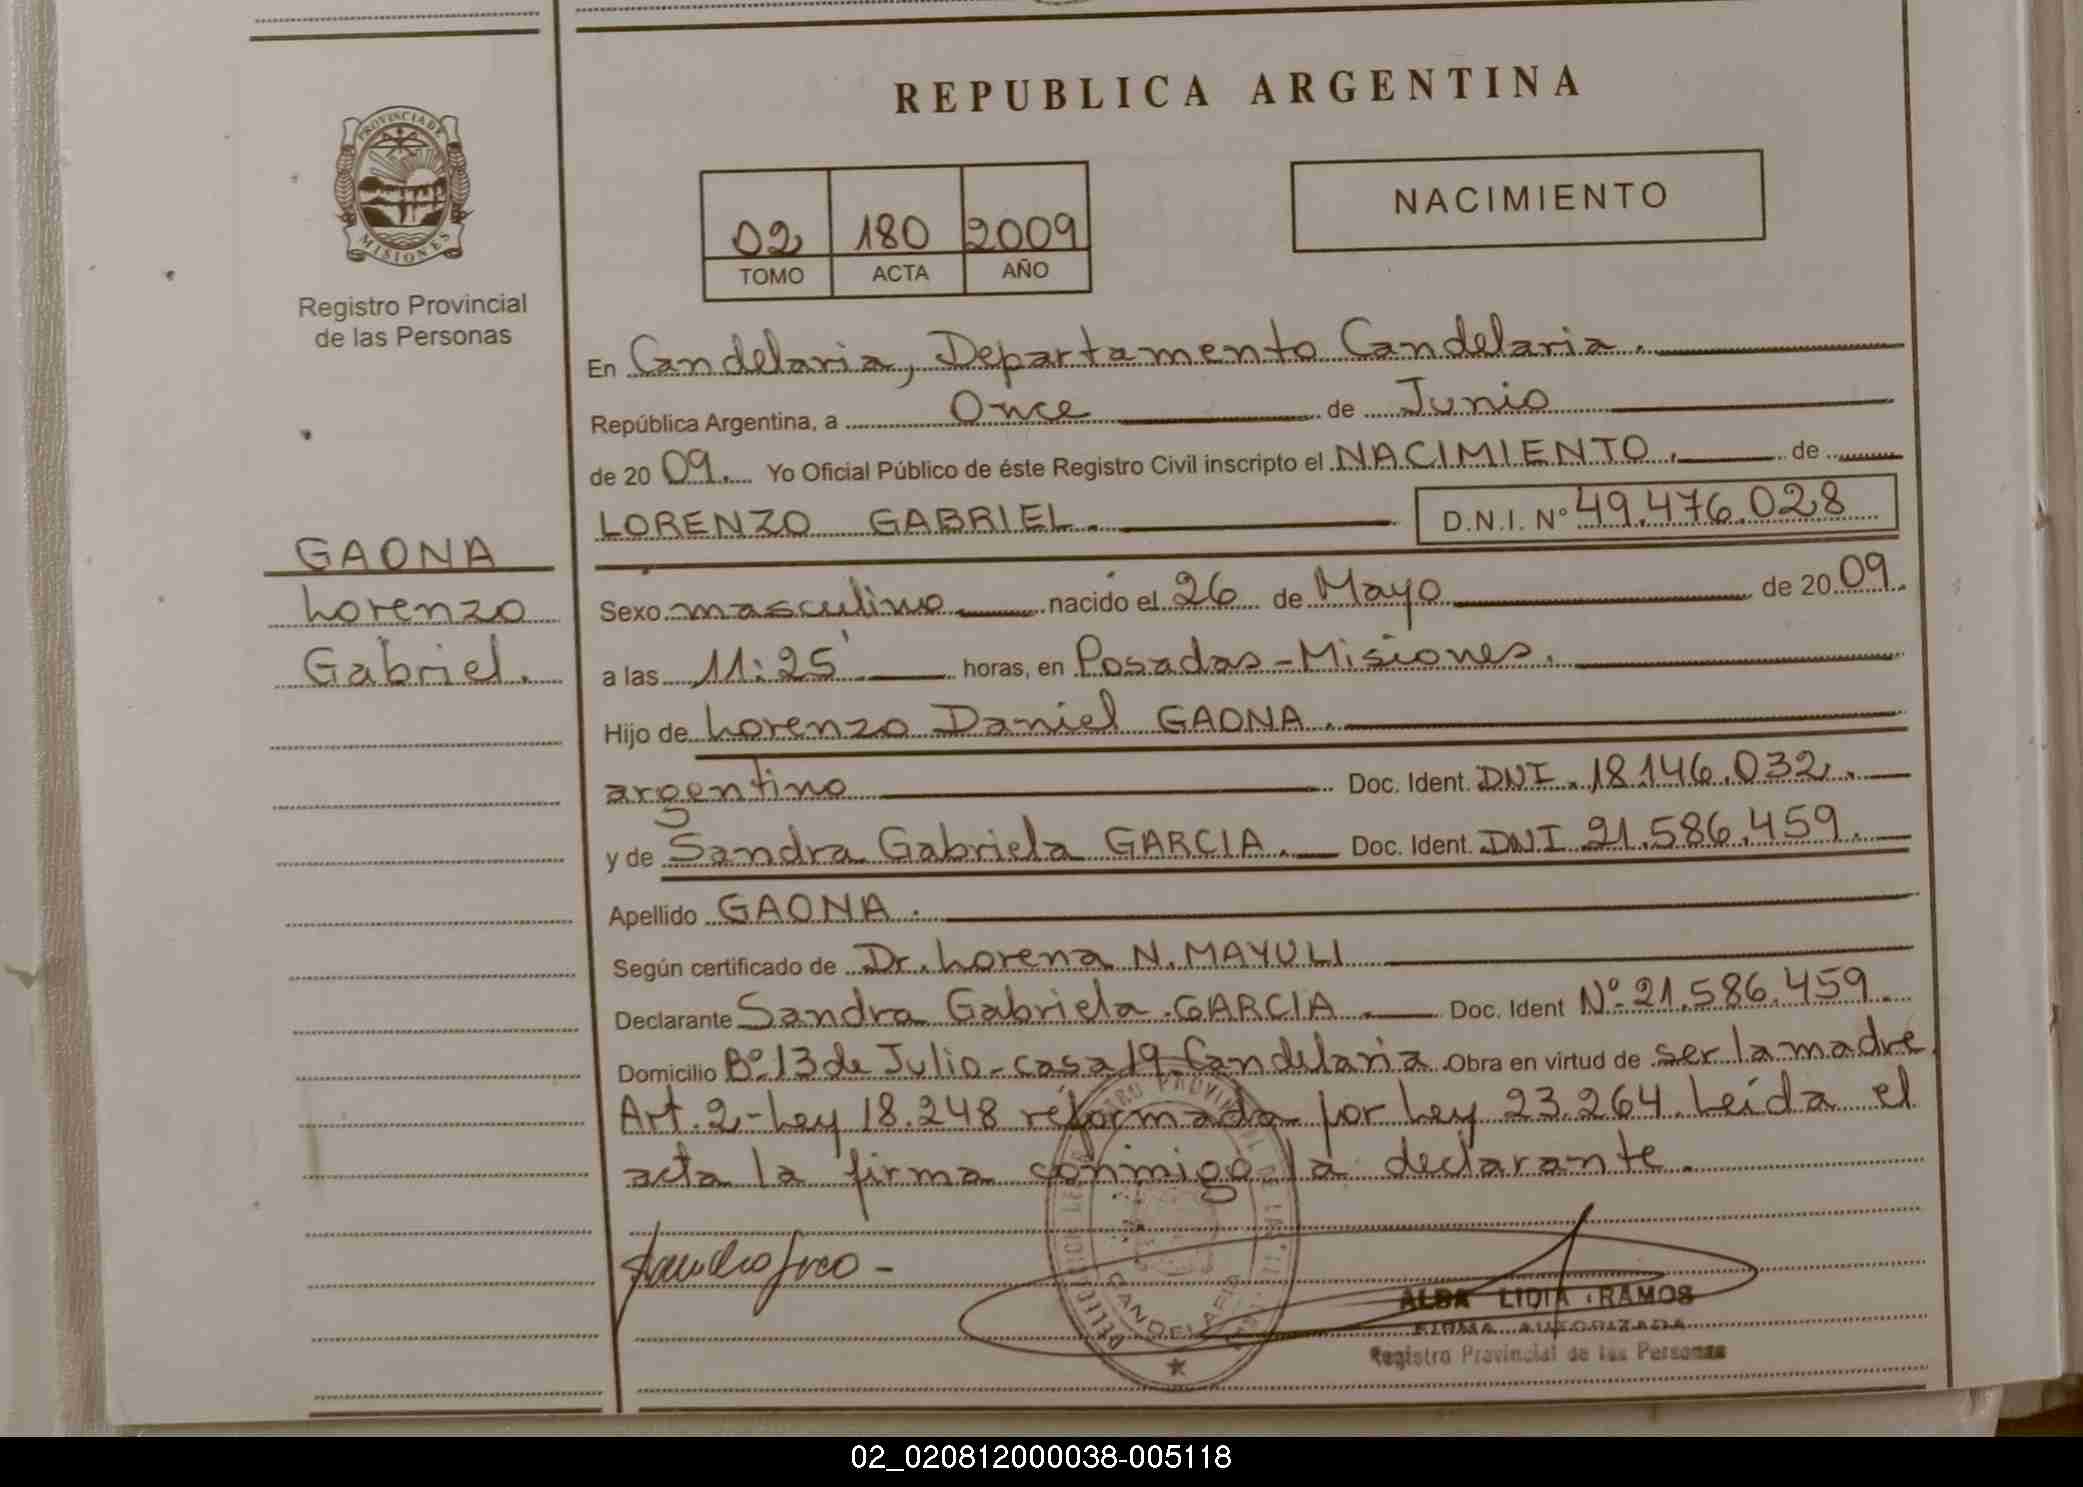 PROVINCIA DE
MISIONES
Registro Provincial
de las Personas
GAONA
Lorenzo
Gabriel.
REPUBLICA ARGENTINA
02 180 2009
TOMO ACTA AÑO
NACIMIENTO
En Candelaria, Departamento Candelaria.
República Argentina, a Once de Junio
de 20 09. Yo Oficial Público de éste Registro Civil inscripto el NACIMIENTO. de
LORENZO GABRIEL. D.N.I. Nº 49.476.028
Sexo masculino nacido el 26 de Mayo de 20 09.
a las 11:25' horas, en Posadas - Misiones.
Hijo de Lorenzo Daniel GAONA.
argentino Doc. Ident. DNI. 18.146.032.
y de Sandra Gabriela GARCIA. Doc. Ident. DNI 21.586.459.
Apellido GAONA.
Según certificado de Dr. Lorena N. MAYULI
Declarante Sandra Gabriela GARCIA. Doc. Ident Nº 21.586.459.
Domicilio Bº 13 de Julio - casa 19 - Candelaria. Obra en virtud de ser la madre.
Art. 2 - Ley 18.248 reformada por Ley 23.264. Leída el
acta la firma conmigo la declarante.
ALBA LIDIA RAMOS
FIRMA AUTORIZADA
Registro Provincial de las Personas
CANDELARIA
02_020812000038-005118